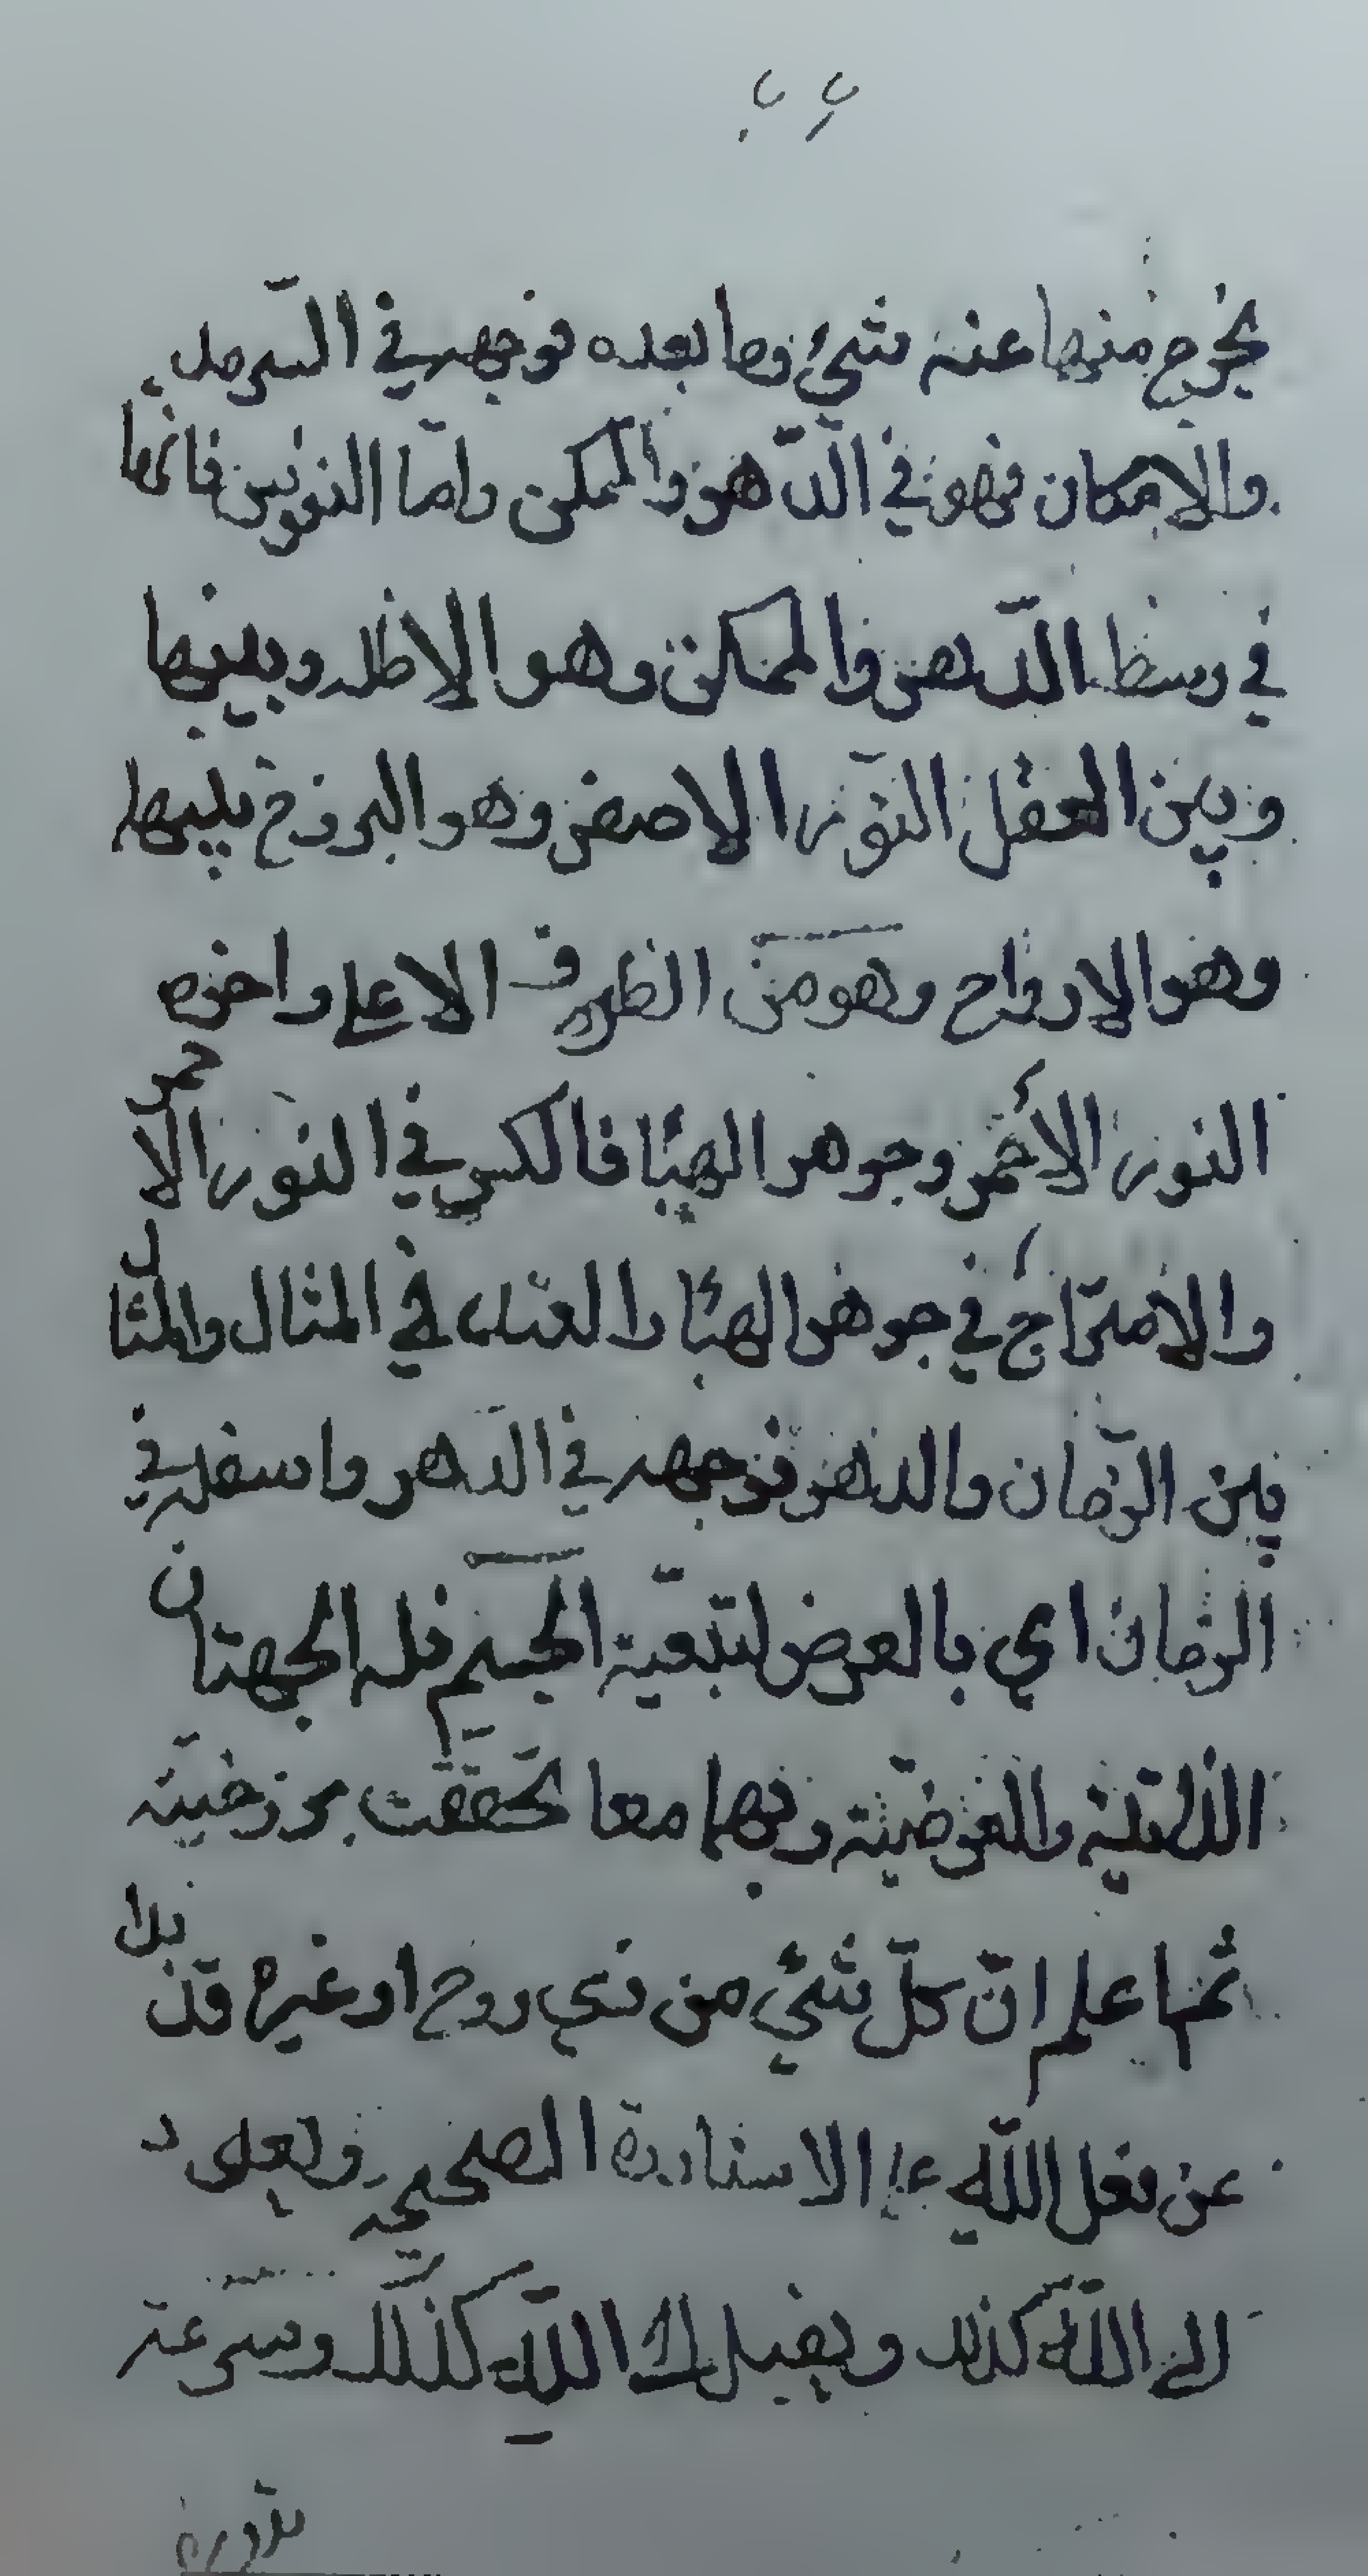 يخرج منها عنه شئ وما بعده فوجهه في السرمد
والامكان فهو في الدّهر والممكن وامّا النفوس فانّها
في وسط الدّهر والممكن وهو الاظله وبينها
وبين العقل النّور الاصفر وهو البرزخ بينهما
وهو الارواح وهو من الطرف الاعلي واخره
النور الأحمر وجوهر الهبا فالكسر في النور الاحمر
والامتزاج في جوهر الهبا والعقد في المثال والمثال
بين الزّمان والدهر فوجهه في الدّهر واسفله في
الزمان اي بالعرض لتبعيّة الجسم فله الجهتان
الذاتية والعرضيّة وبهما معا تحققت برزخيّته
ثم اعلم انّ كلّ شئ من ذي روح او غيره قد بدا
عن فعل اللّه علي الاستدارة الصحيحة ويعود
الي اللّه كذلك ويقبل الي اللّه كذلك وسرعة